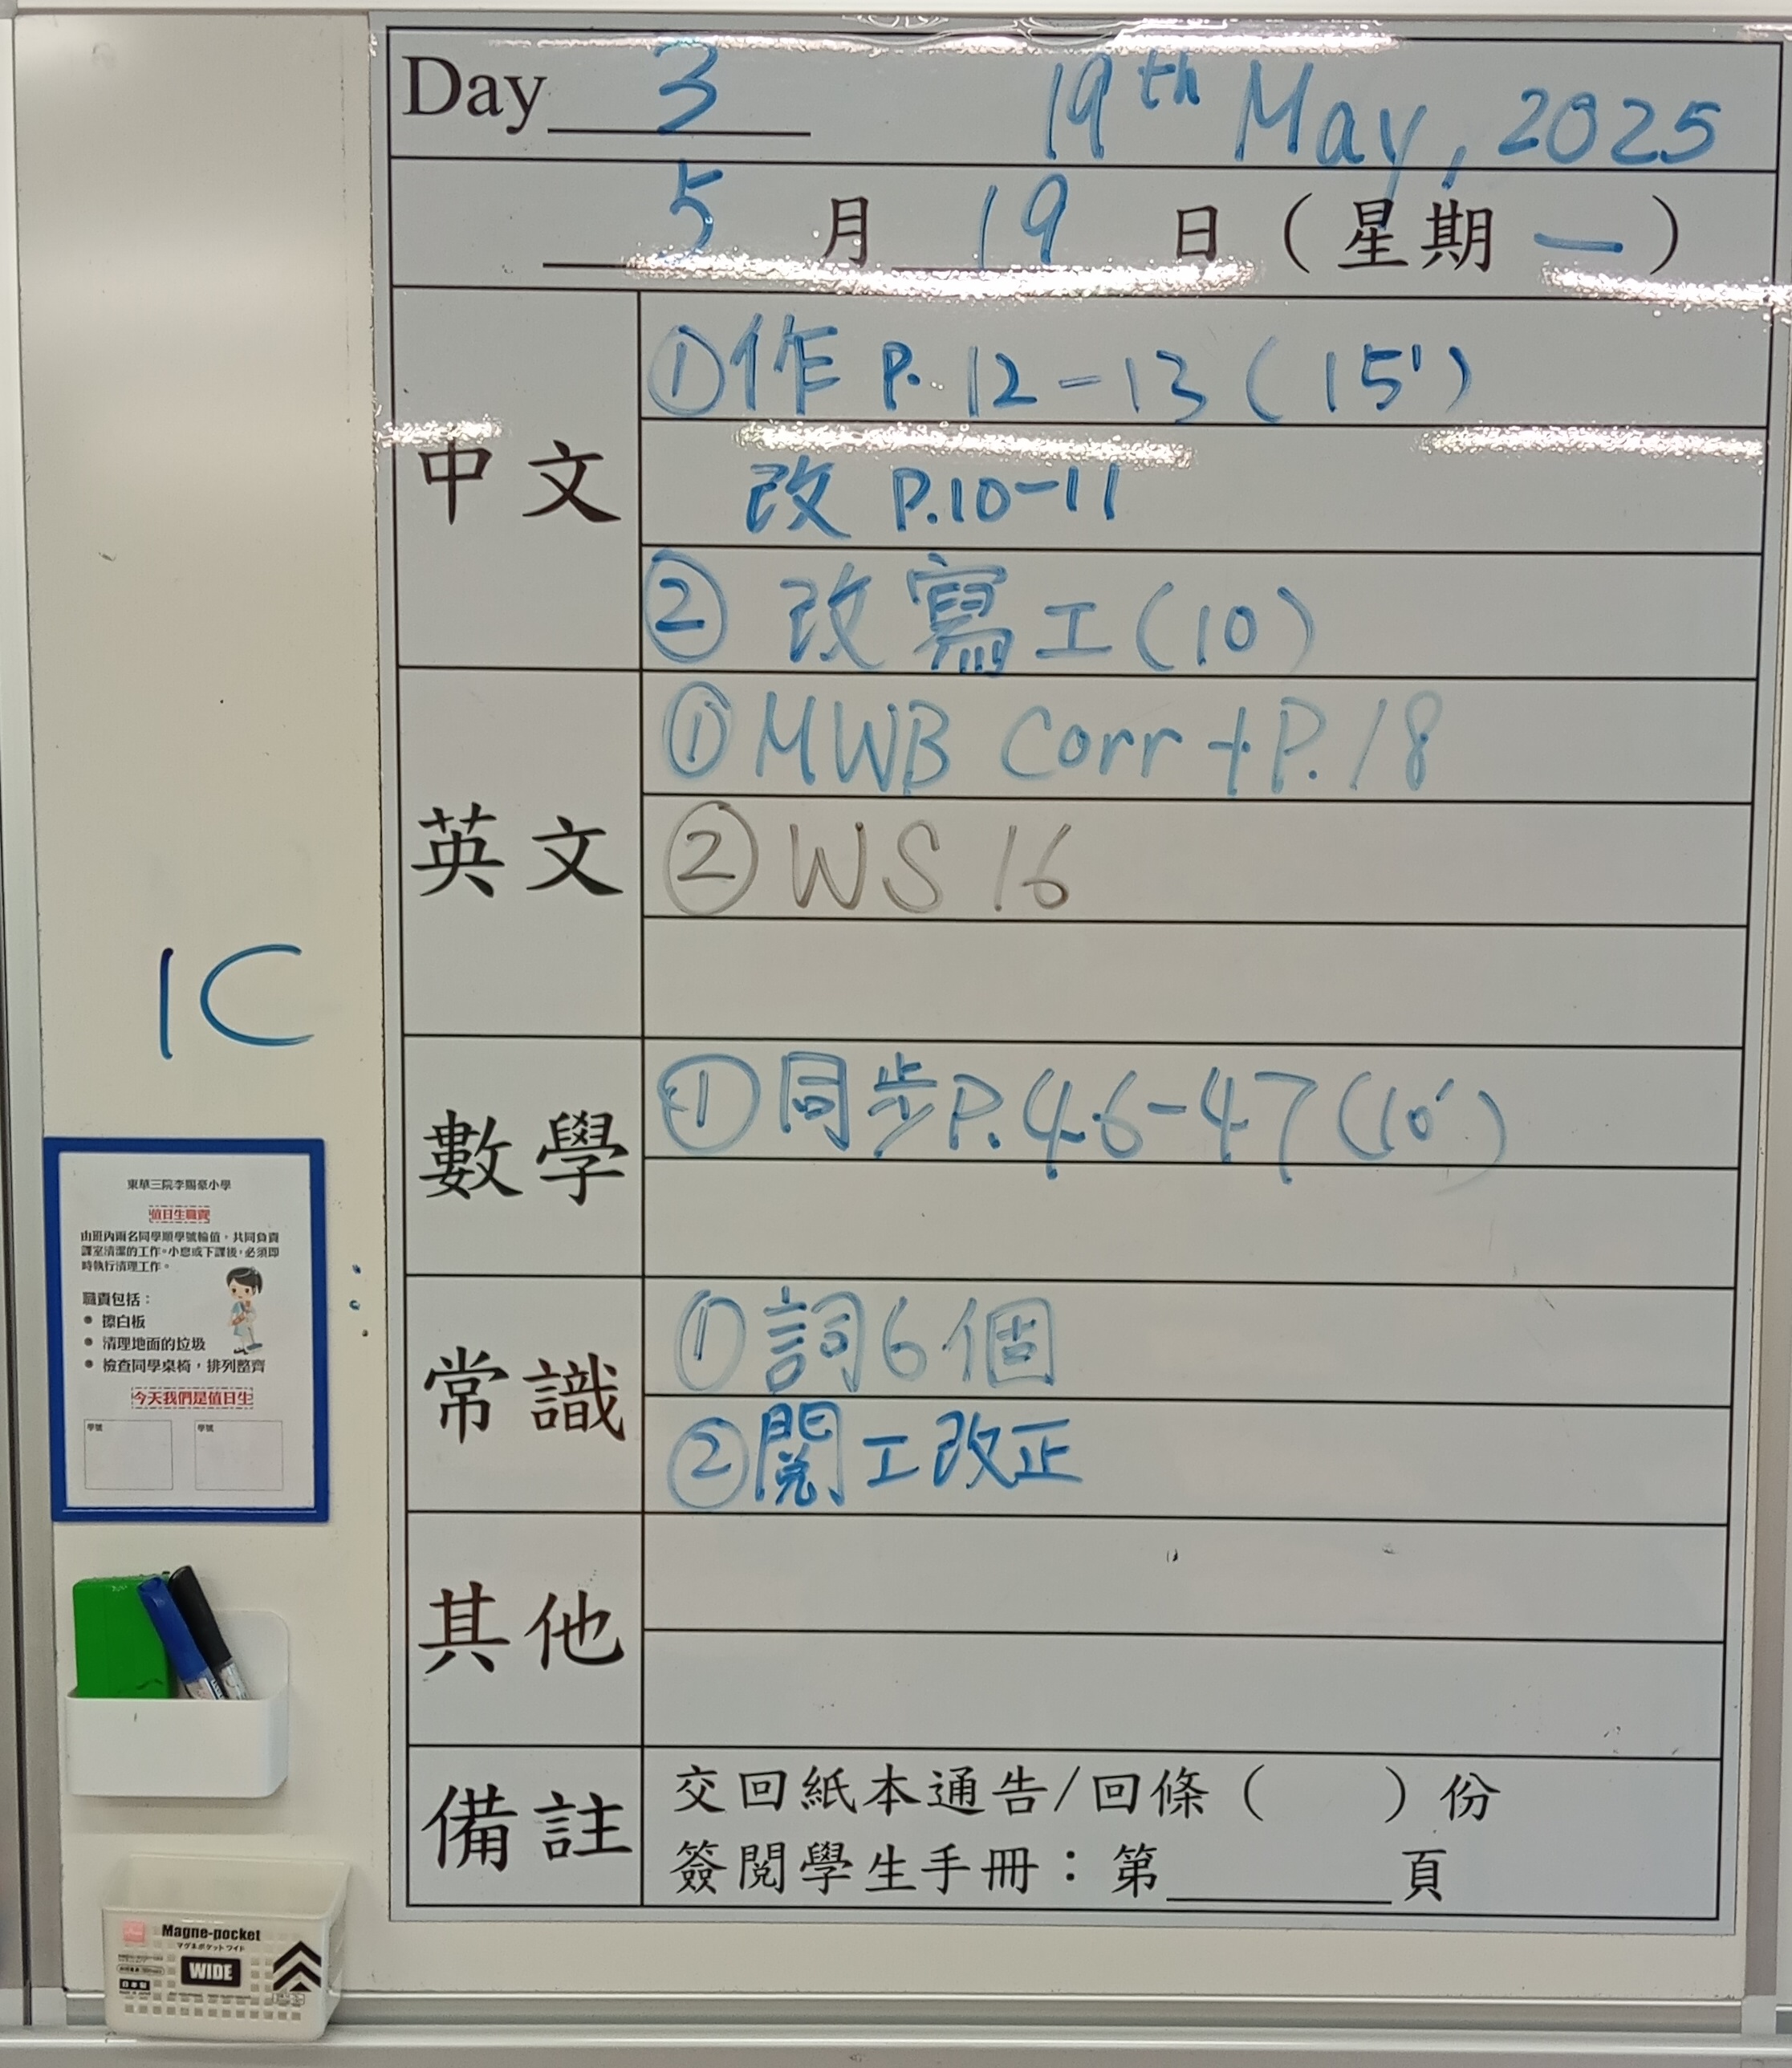 Day 3 19th May, 2025
5 月 19 日 (星期一)
中文
①作 P. 12-13 (15')
改 P.10-11
② 改寫工(10)
英文
①MWB Corr + P. 18
② WS 16
數學
①同步P. 46-47 (10')
常識
①詞6個
②閱工改正
其他
備註
交回紙本通告/回條 ( ) 份
簽閱學生手冊：第 頁
1C
東華三院李賜豪小學
值日生職責
由班內兩名同學順學號輪值，共同負責
課室清潔的工作。小息或下課後，必須即
時執行清理工作。
職責包括：
● 擦白板
● 清理地面的垃圾
● 檢查同學桌椅，排列整齊
今天我們是值日生
學號 學號
Magne-pocket
マグネポケット ワイド
WIDE
日本製